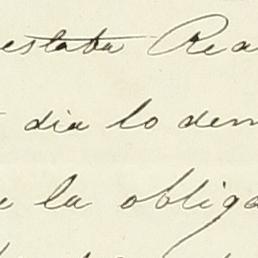 estaba Rea
dia lo dem
e la obliga